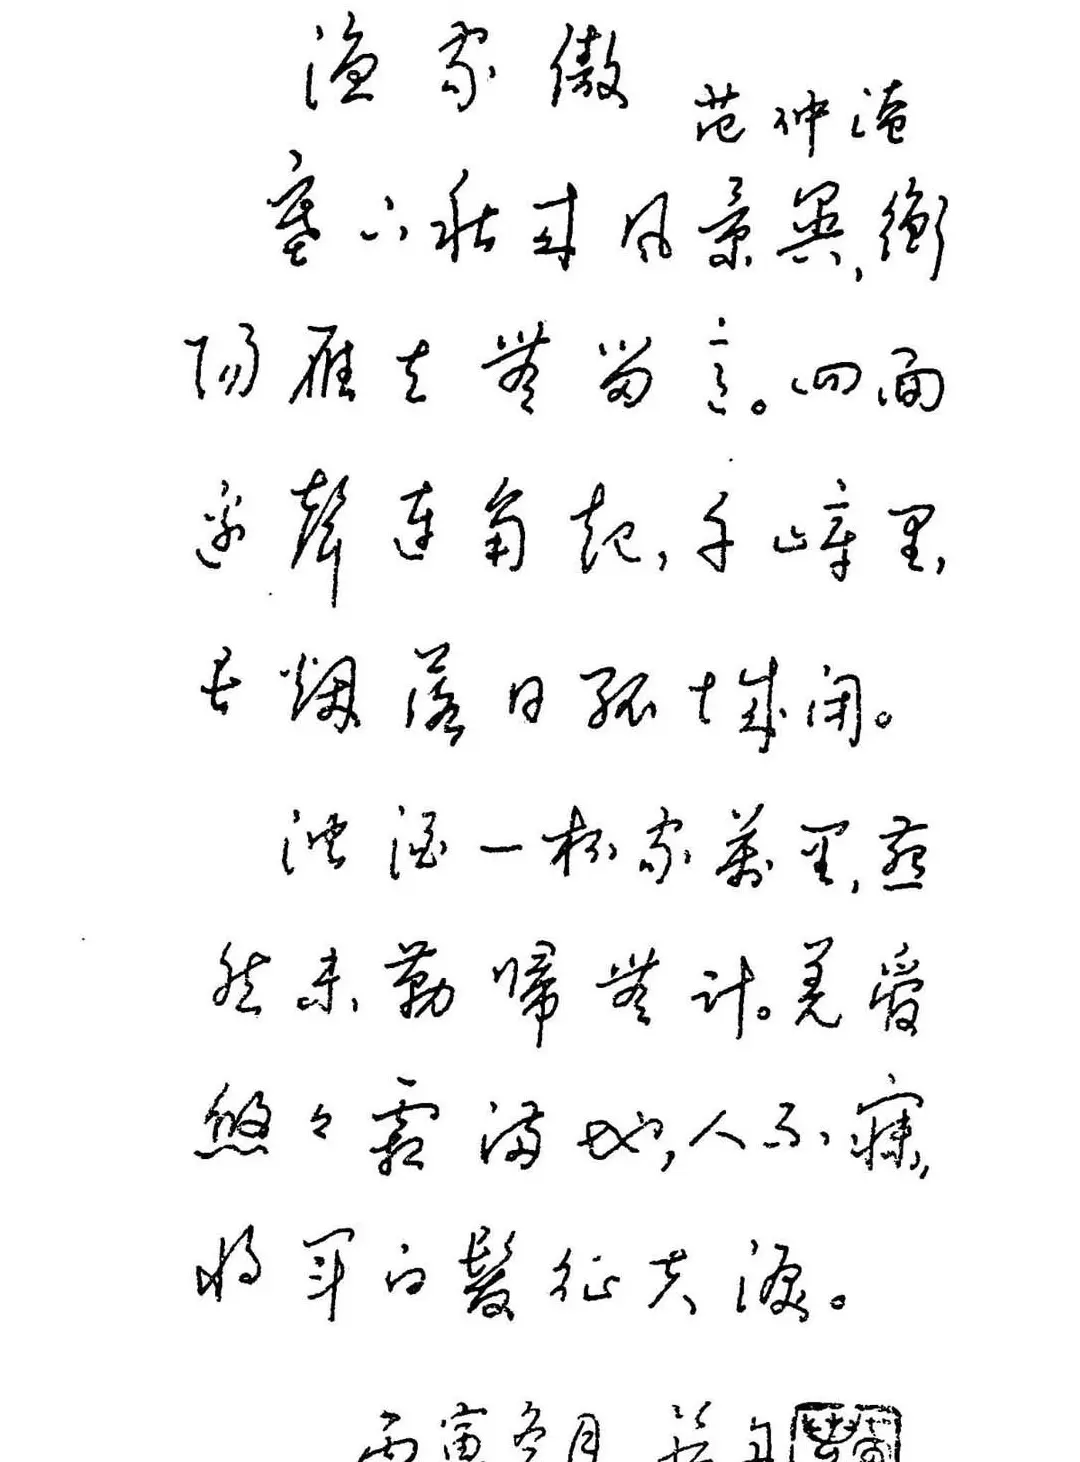 渔家傲
范仲淹
塞下秋来风景異,衡
阳雁去無留意。四面
边聲连角起,千嶂里,
长烟落日孤城闭。
浊酒一杯家萬里,燕
然未勒歸無计。羌管
悠々霜满地,人不寐,
将军白髮征夫淚。
丙寅冬月